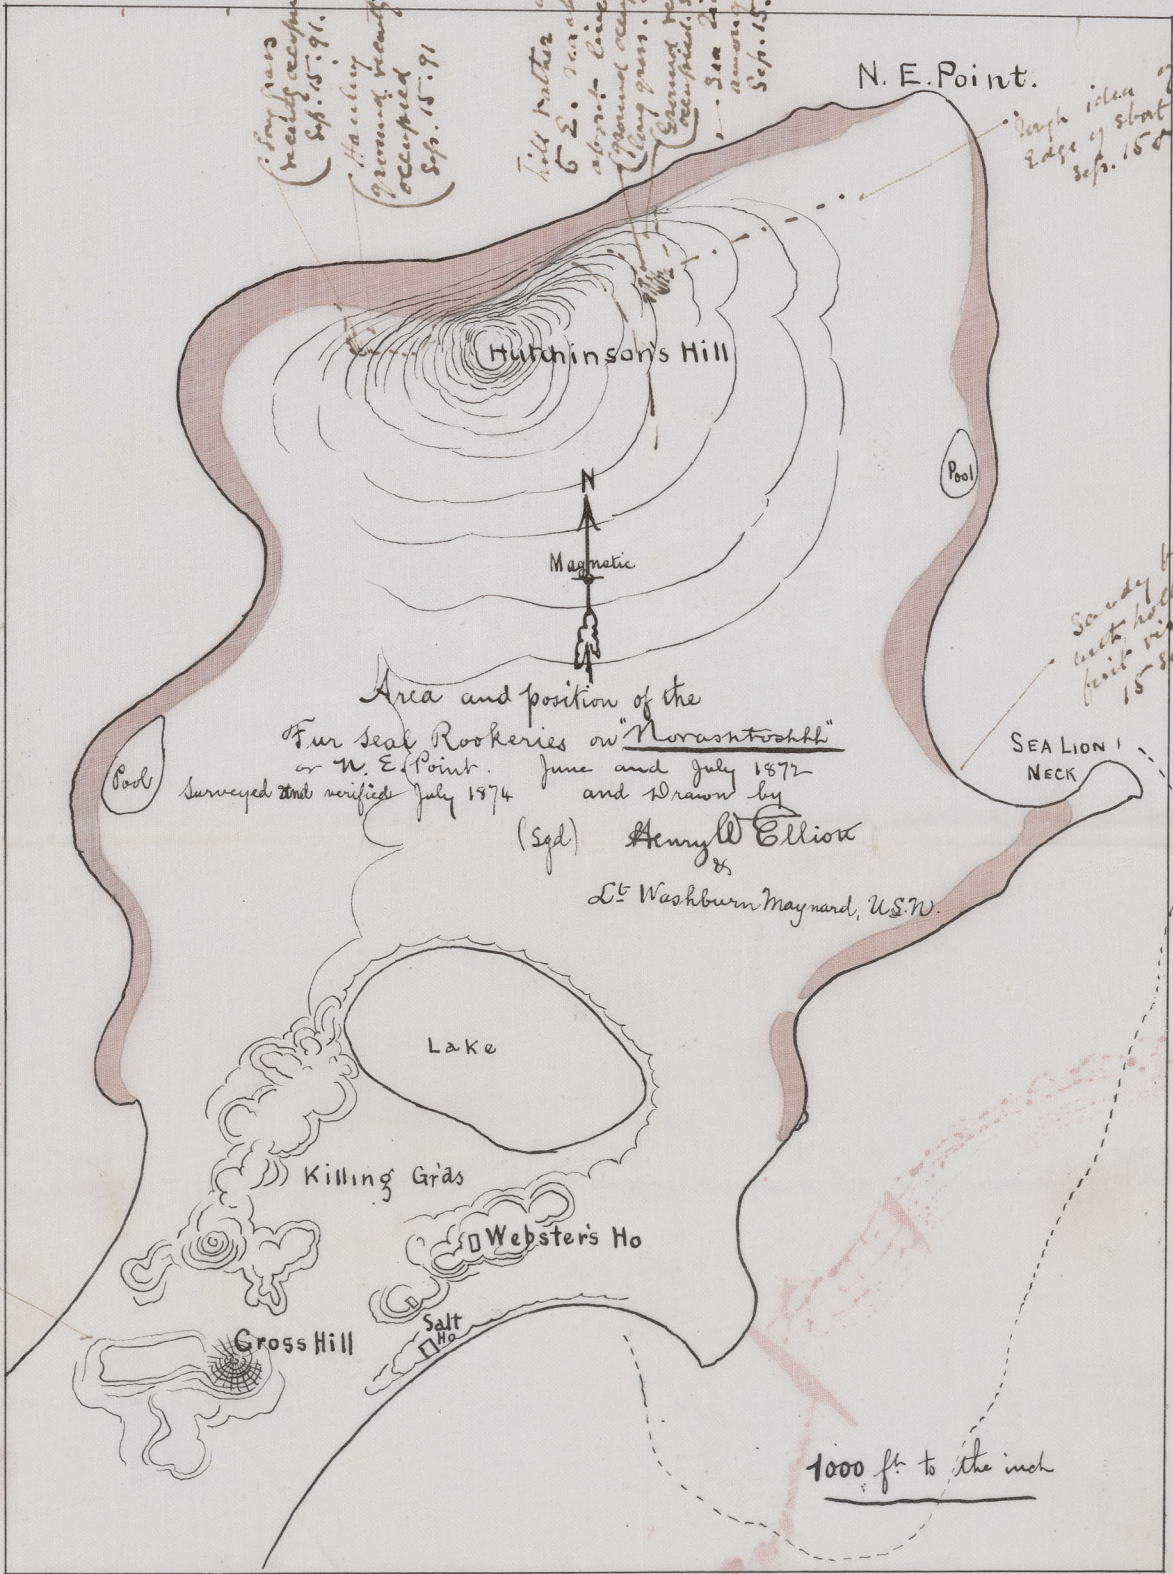 Sep. 15. 91.
Hauling
ground recently
occupied
Sep. 15. 91
hill rather
among
Sep. 15.
N. E. Point.
rough idea of
Edge of short
Sep. 15
Hutchinson's Hill
Pool
N
Magnetic
Sandy
15
Area and position of the
Fur Seal Rookeries on "Novashtoshhh"
or N. E. Point. June and July 1872
Surveyed and verified July 1874 and Drawn by
(Sgd) Henry W Elliott
&
Lt Washburn Maynard, U.S.N.
Pool
SEA LION
NECK
Lake
Killing Gr'ds
Webster's Ho
Salt
Ho
Cross Hill
1000 ft to the inch